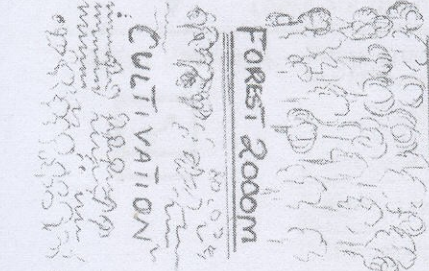 FOREST 2000M
CULTIVATION